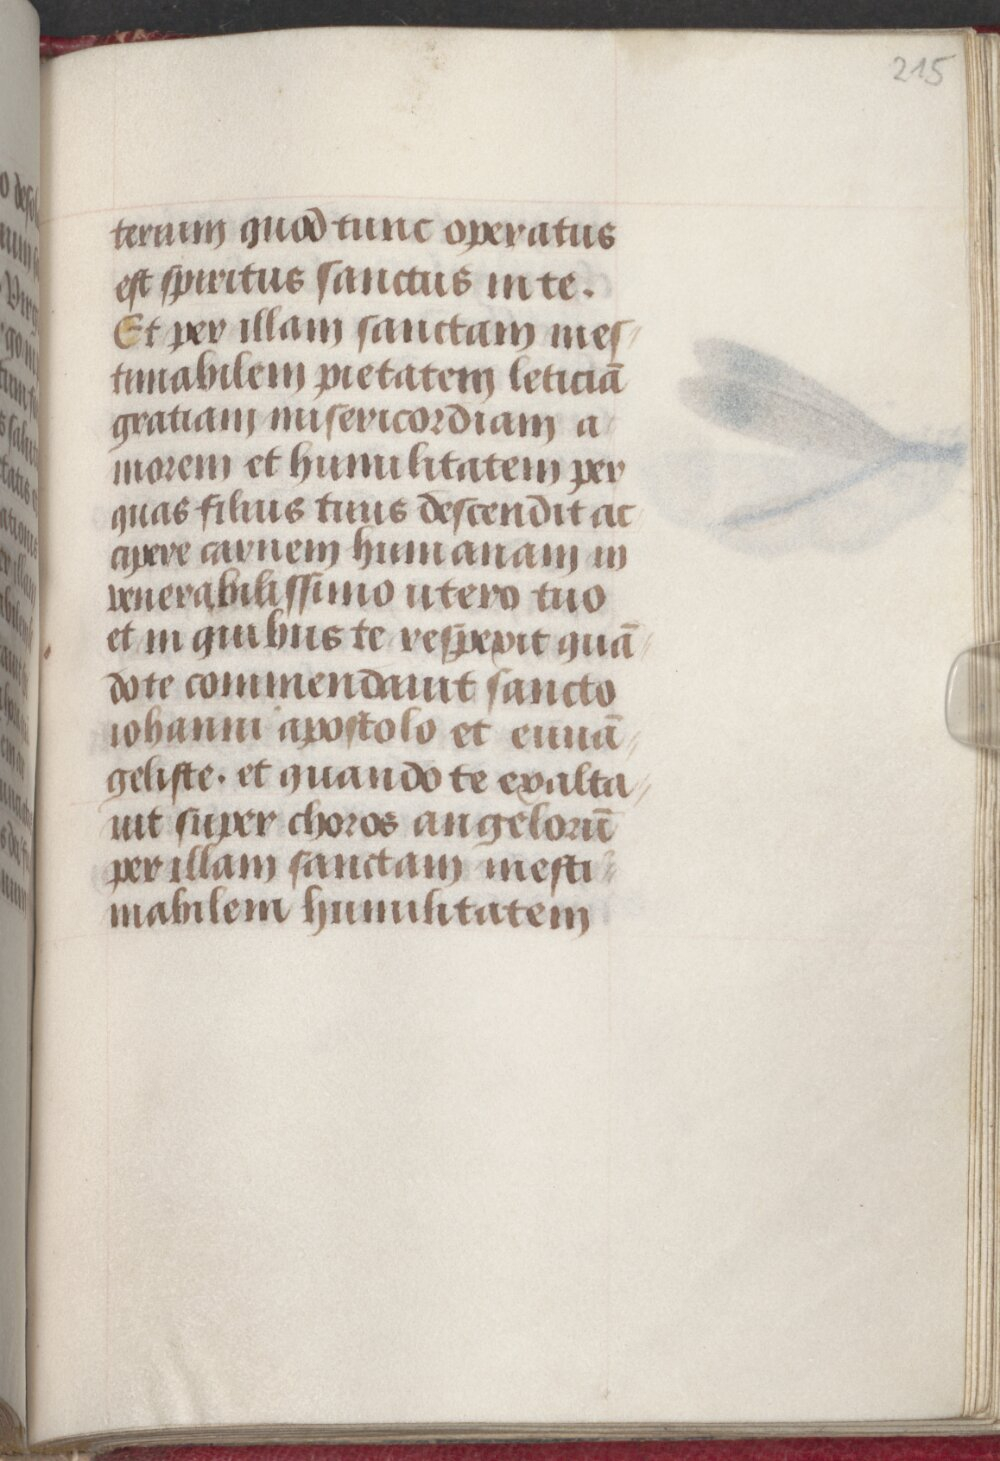 215
terium quod tunc operatus
est spiritus sanctus in te.
Et per illam sanctam ines⸗
timabilem pietatem leticiā
gratiam misericordiam a
morem et humilitatem per
quas filius tuus descendit ac
cipere carnem humanam in
venerabilissimo utero tuo
et in quibus te respexit quā⸗
do te commendauit sancto
iohanni apostolo et euuā⸗
geliste. et quando te exalta⸗
uit super choros angelorū
per illam sanctam inesti⸗
mabilem humilitatem